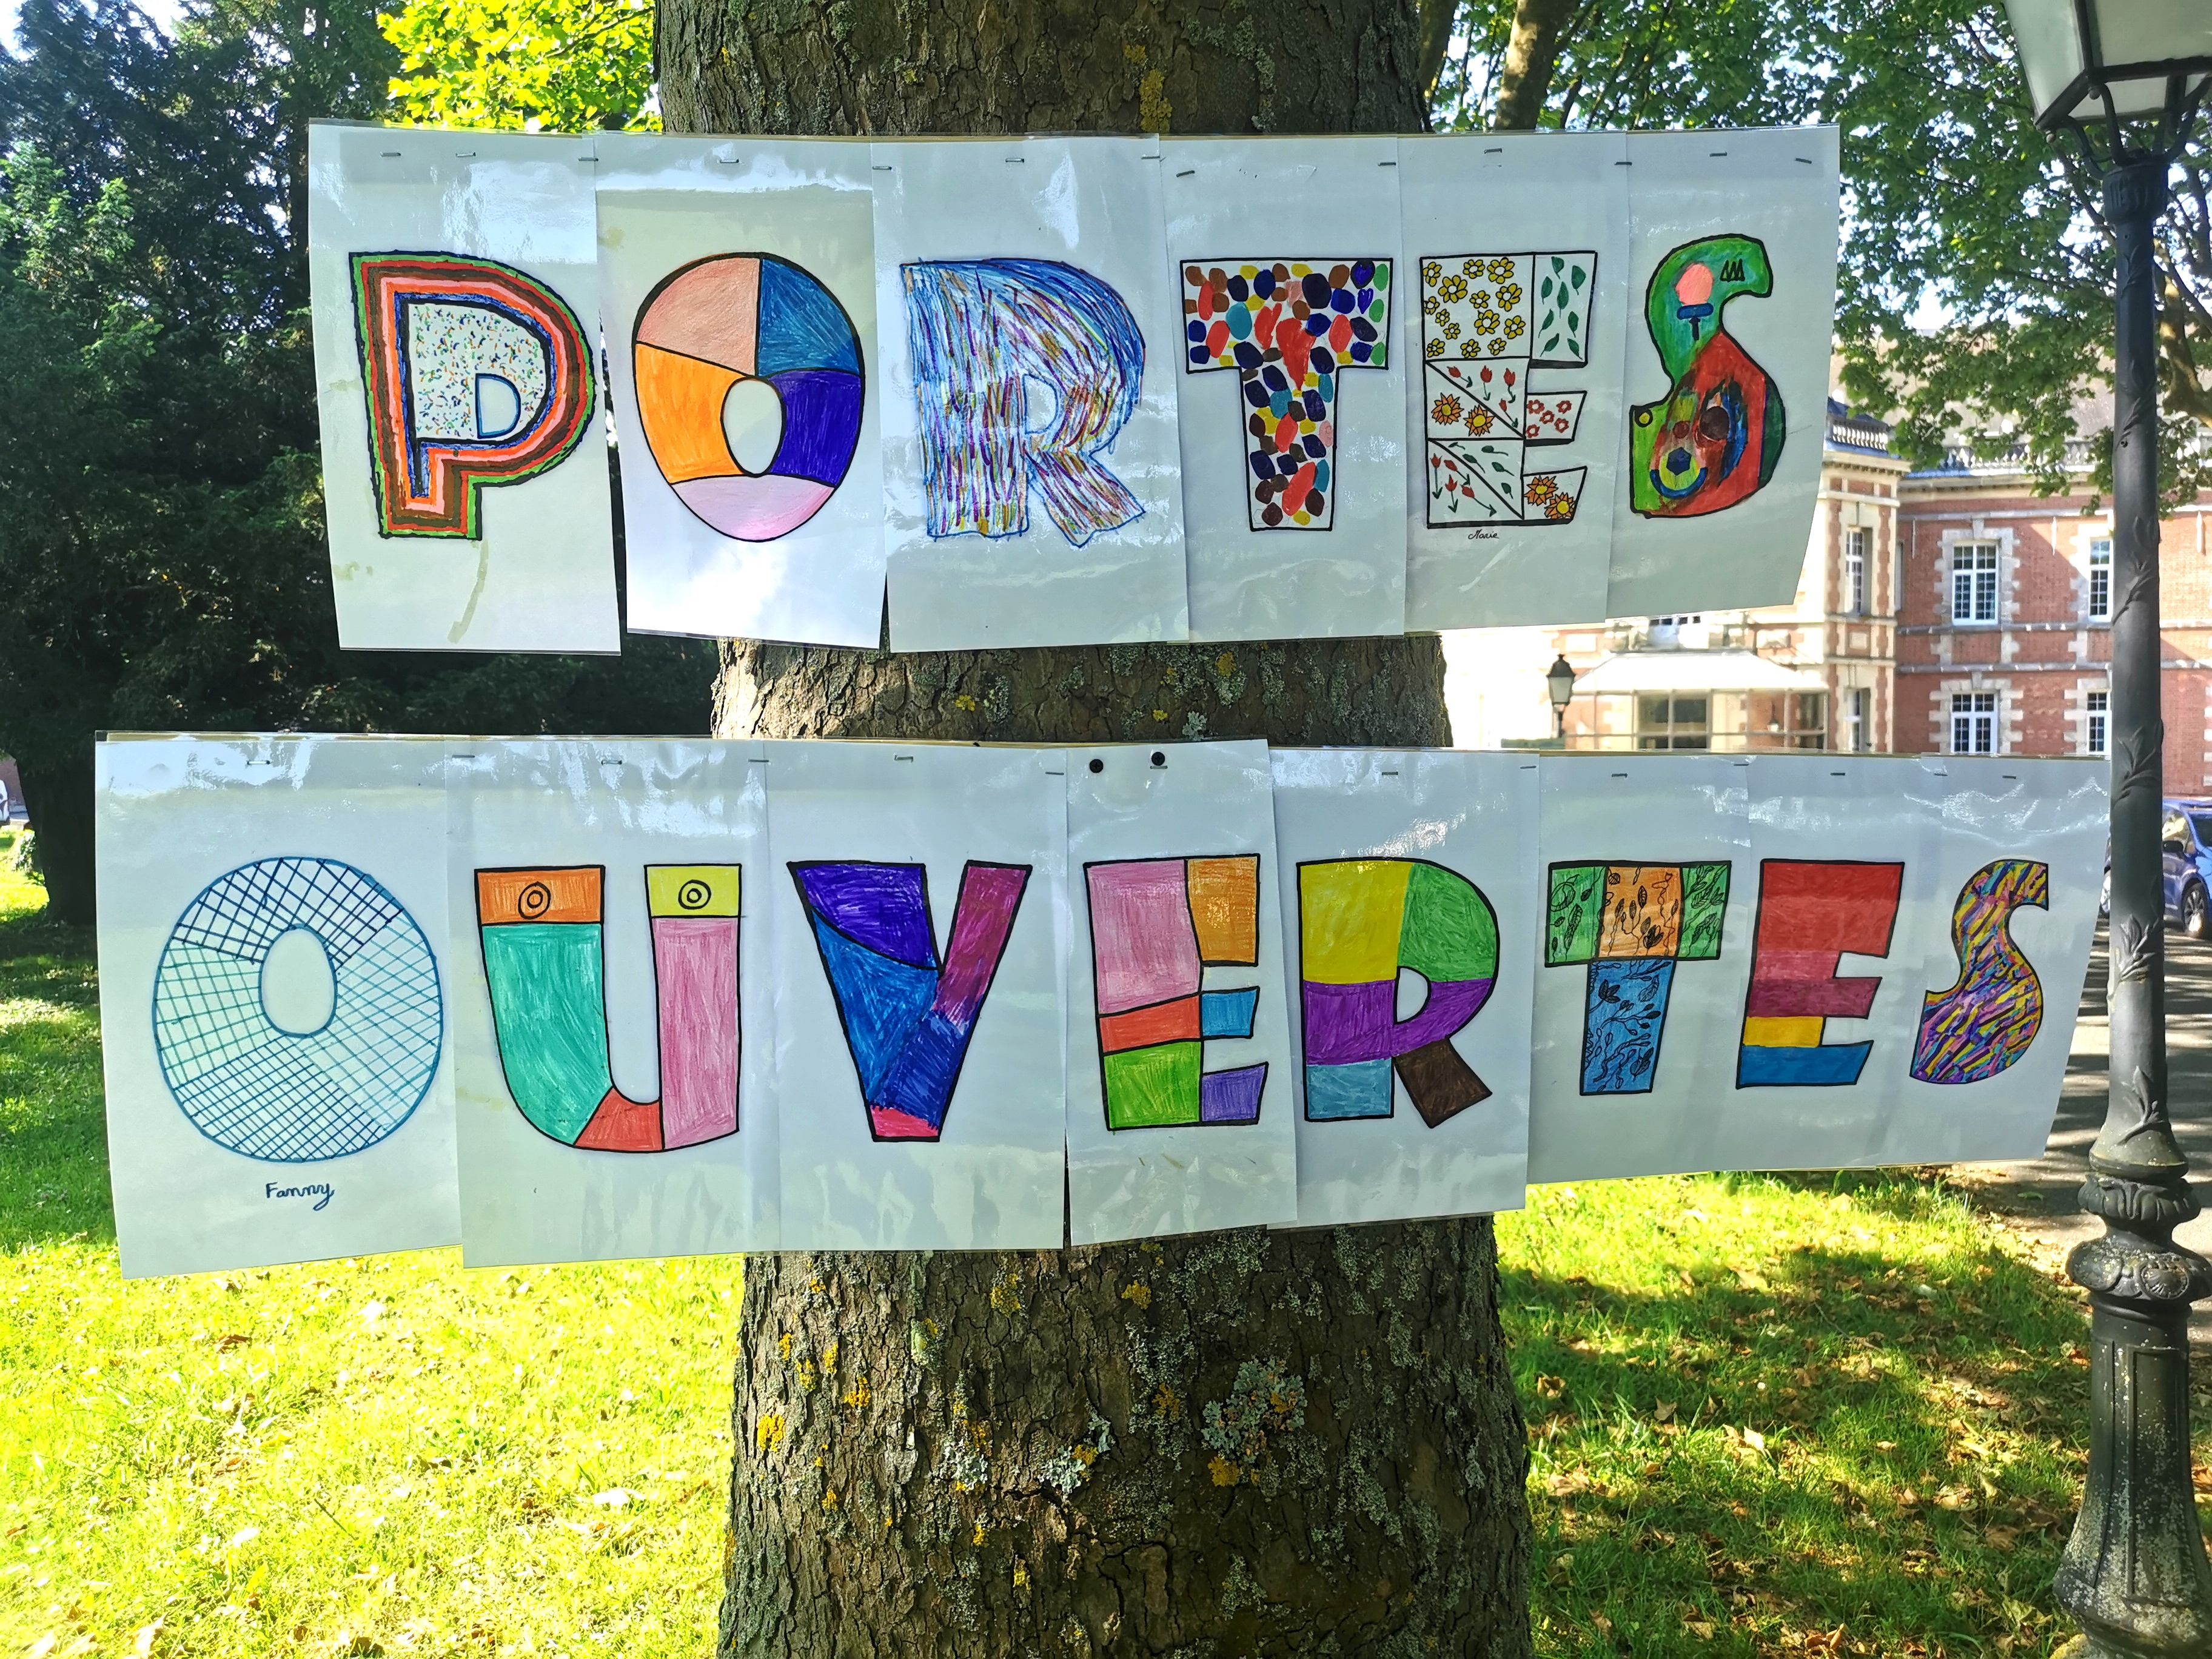 PORTES
Marie
OUVERTES
Fanny